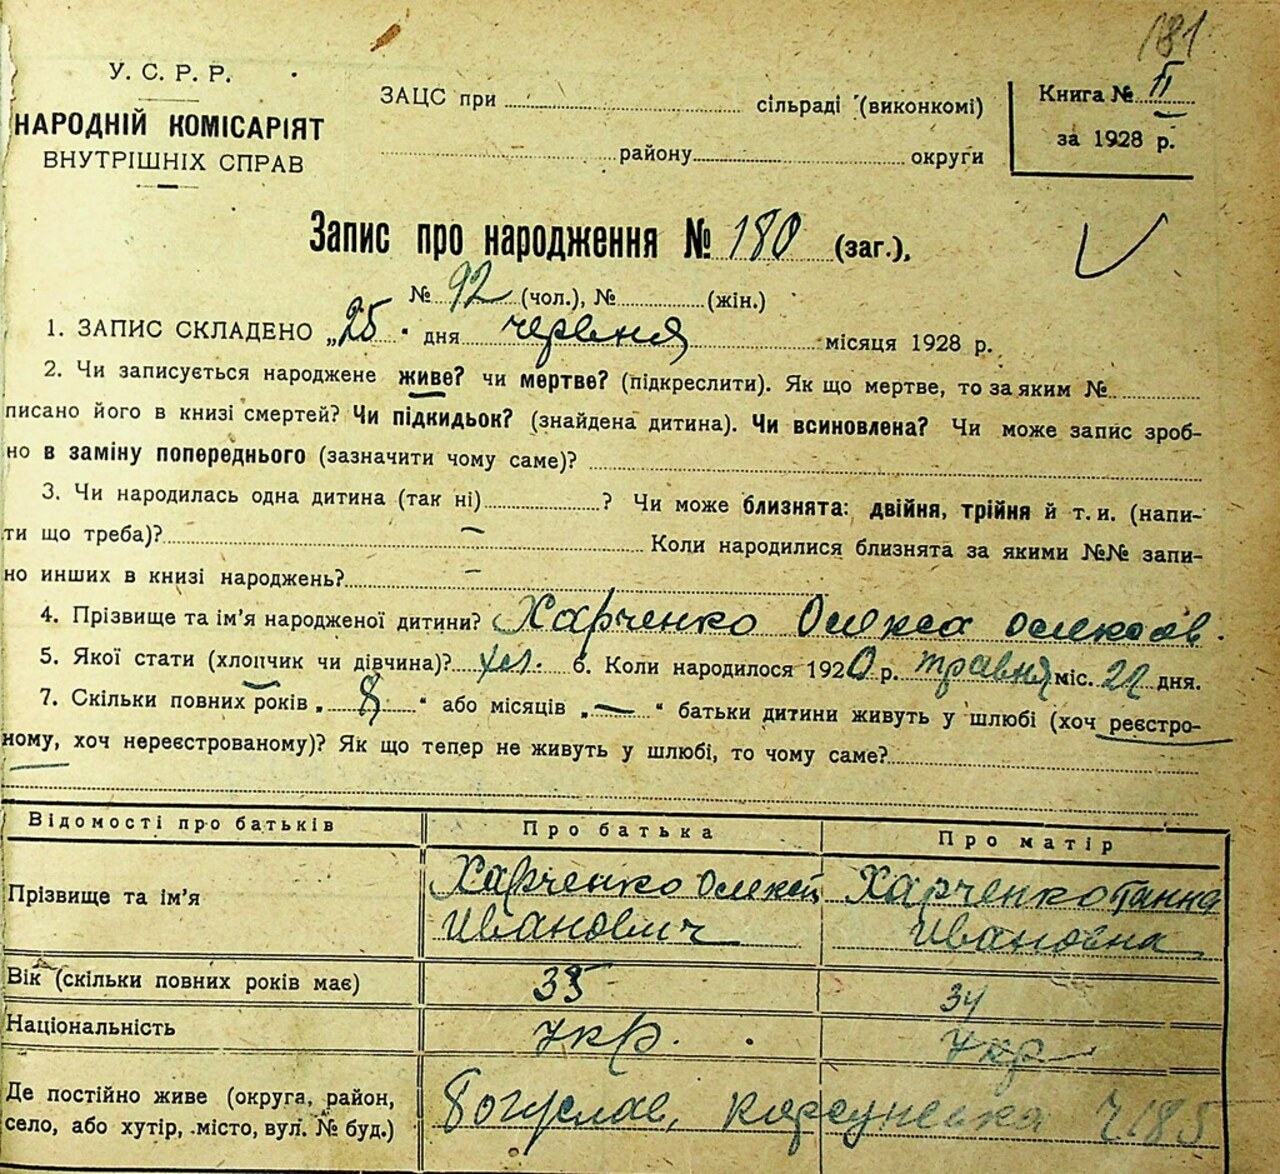 181
У. С. Р. Р.
НАРОДНІЙ КОМІСАРІЯТ
ВНУТРІШНІХ СПРАВ
ЗАЦС при сільраді (виконкомі)
району округи
Книга № II
за 1928 р.
Запис про народження № 180 (заг.),
№ 92 (чол.), № (жін.)
1. ЗАПИС СКЛАДЕНО „25" дня червня місяця 1928 р.
2. Чи записується народжене живе? чи мертве? (підкреслити). Як що мертве, то за яким №
писано його в книзі смертей? Чи підкидьок? (знайдена дитина). Чи всиновлена? Чи може запис зроб-
но в заміну попереднього (зазначити чому саме)?
3. Чи народилась одна дитина (так ні) ? Чи може близнята: двійня, трійня й т. и. (напи-
ти що треба)? — Коли народилися близнята за якими №№ запи-
но инших в книзі народжень? —
4. Прізвище та ім'я народженої дитини? Харченко Олекса Олексіїв.
5. Якої стати (хлопчик чи дівчина)? хл. 6. Коли народилося 1920 р. травня міс. дня.
7. Скільки повних років „ 8 " або місяців „ — " батьки дитини живуть у шлюбі (хоч реєстро-
ному, хоч нереєстрованому)? Як що тепер не живуть у шлюбі, то чому саме?
Відомості про батьків Про батька Про матір
Прізвище та ім'я Харченко Олексій Харченко Ганна
Иванович Ивановна
Вік (скільки повних років має) 35 34
Національність Укр. Укр
Де постійно живе (округа, район,
село, або хутір, місто, вул. № буд.) Богуслав, Корсунська 185